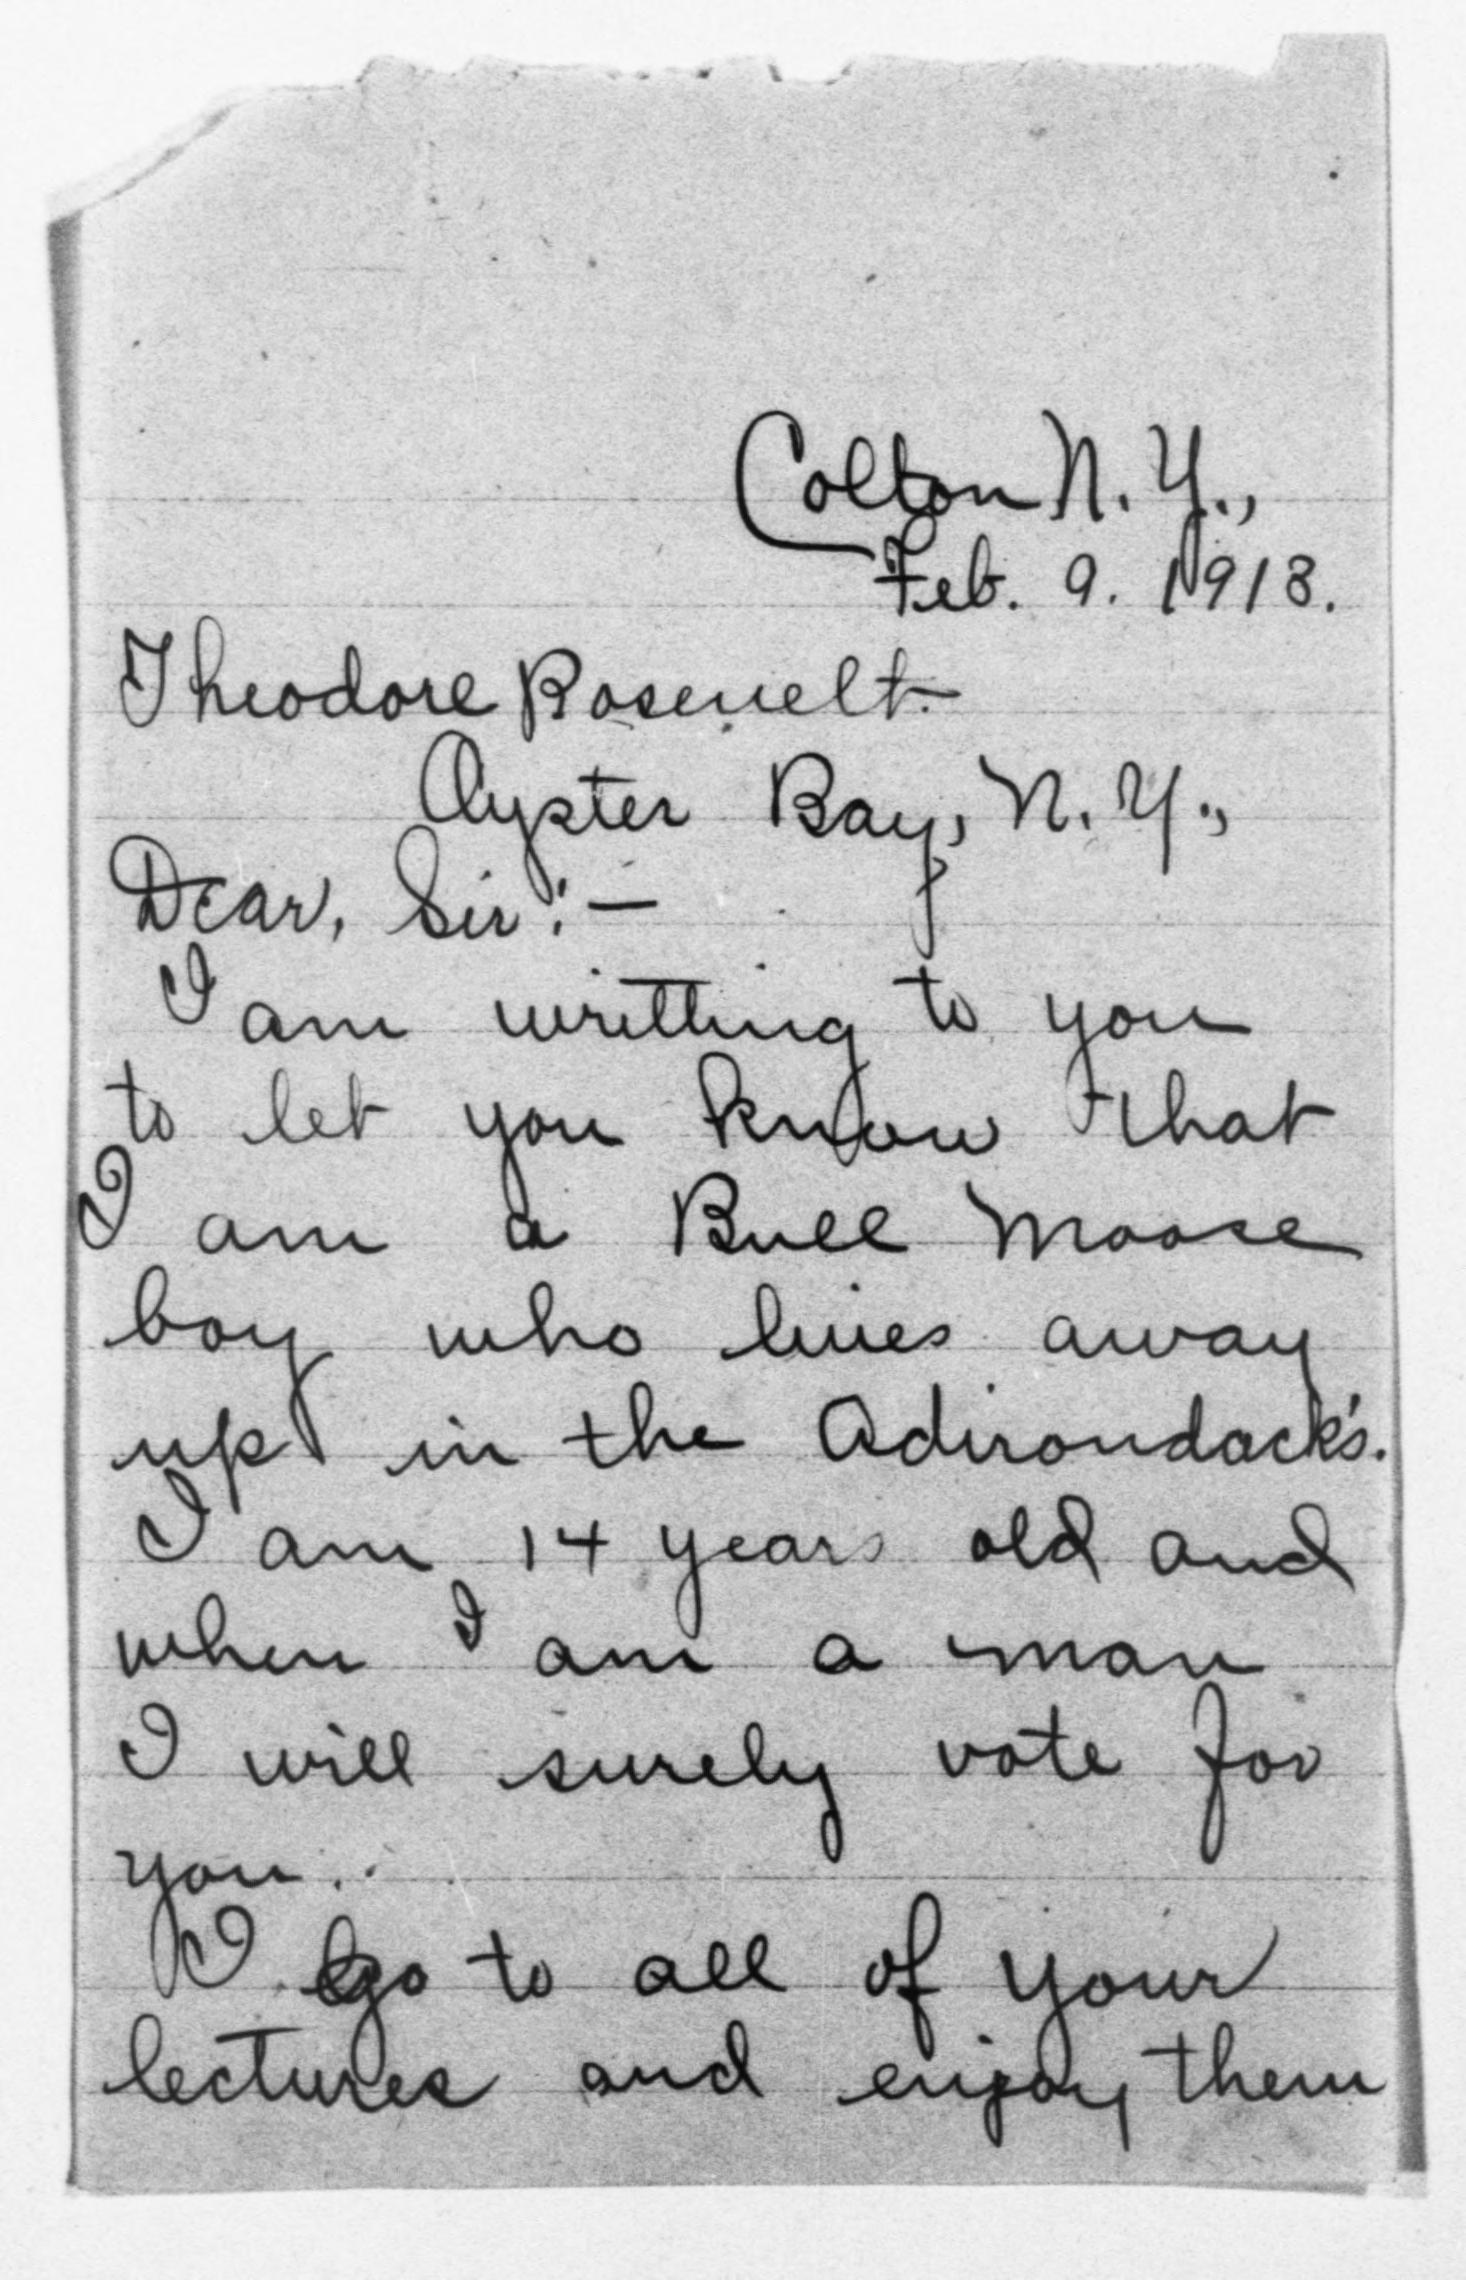 Colton N. Y.,
Feb. 9. 1913.
Theodore Rosevelt.
Oyster Bay, N. Y.,
Dear, Sir:—
I am writting to you
to let you know that
I am a Bull Moose
boy who lives away
up in the Adirondack's.
I am 14 years old and
when I am a man
I will surely vote for
you.
I go to all of your
lectures and enjoy them